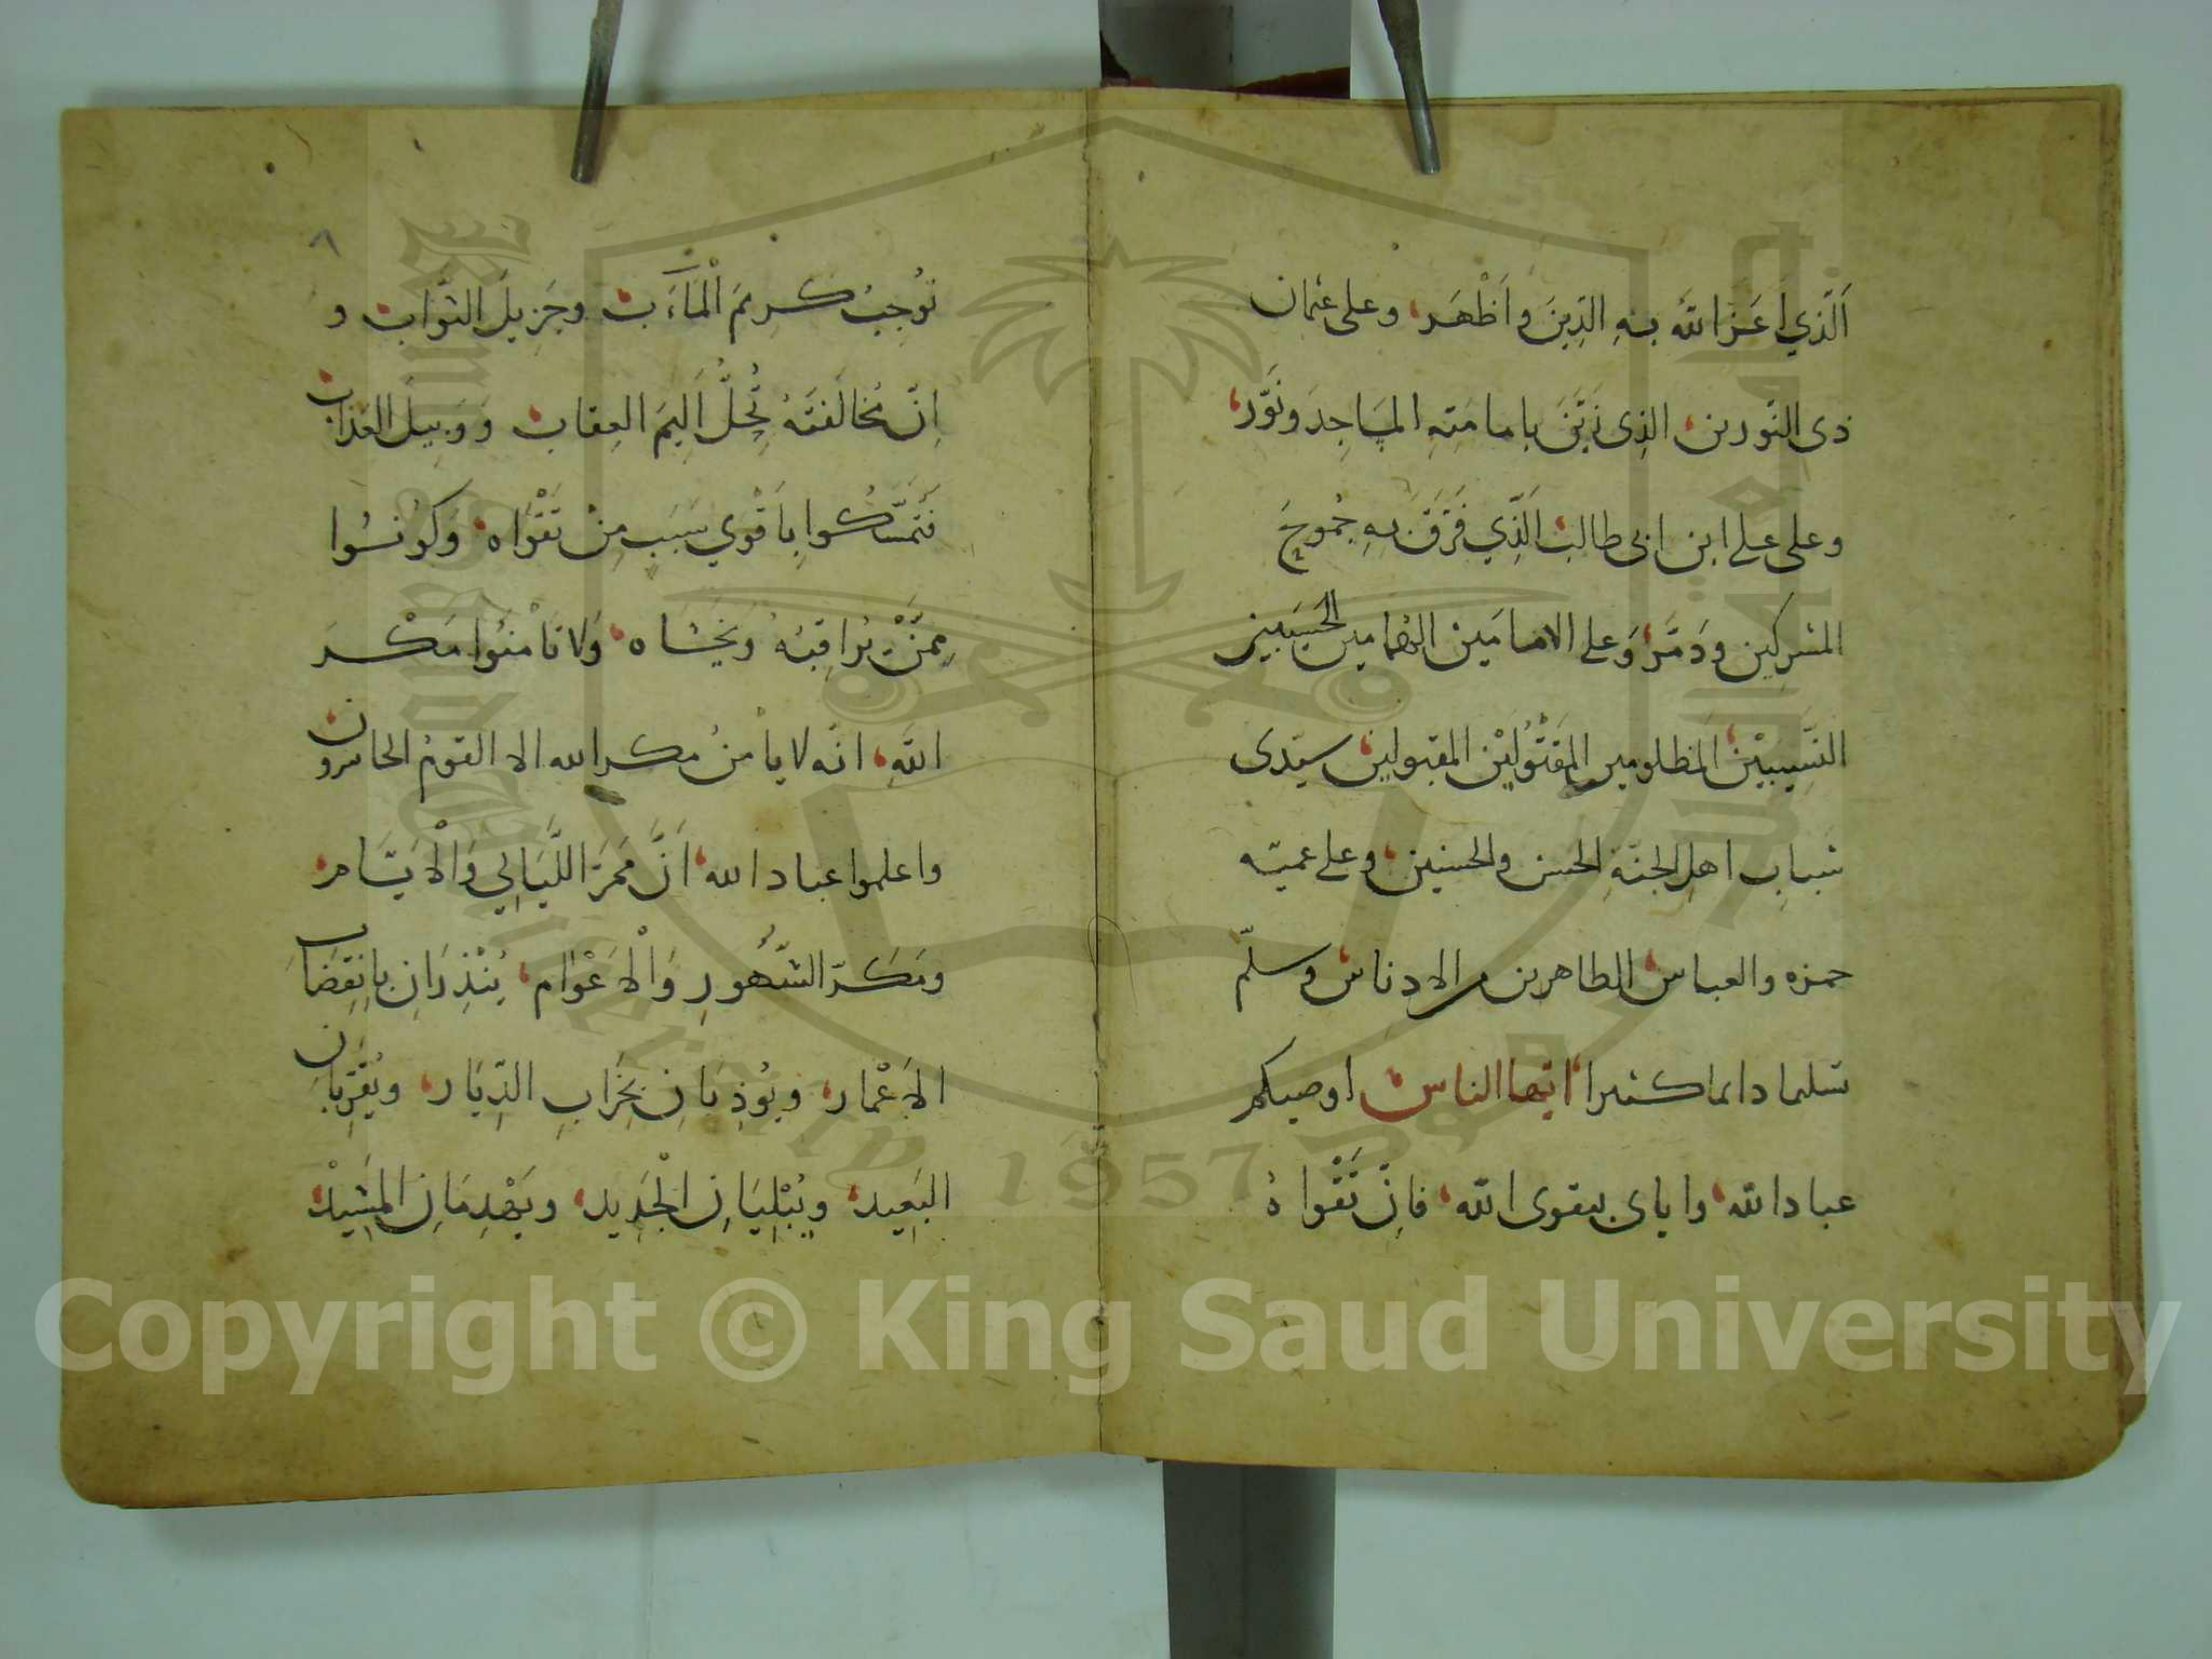 اَلَّذِي اَعَزَ اللّٰهُ بِهِ الدِّينَ وَاَظْهَرَ، وعلى عثمان
ذى النّورين، الذِى زَيَّنَ بامامَتِهِ المسَاجِدَ ونَوَّرَ،
وعلى على ابن ابى طالب، الَّذِي فَرَّقَ بِهِ جُمُوعَ
المشركين ودَمَّرَ، وَعلى الامامَين الهُمامين الحَسِيبين
النَّسِيبَيْن، المظلومين المَقْتُولَيْن المقبولين، سيّدى
شباب اهلِ الجنّةِ الحسن والحسين، وعلى عميّه
حمزه والعباس، الطاهرين من الادناس، وسلّم
تسليما دايما كثيرا، ايّها الناس، اوصيكم
عباد اللّه، واياى بتقوى اللّه، فاِنَّ تَقْواهُ
٨
تُوجِبُ كريمَ الْمَاَۤبِ، وجَزِيلَ الثّوَاب، و
اِنَّ مُخالَفتَهُ تُحِلُّ اَلِيمَ العِقاب، وَوَبِيلَ العَذاب،
فَتَمَسَّكُوا بِاَقْوي سَبَبٍ مِنْ تَقْوَاه، وَكوُنُوا
مِمَّنْ يُراقِبُهُ وَيَخْشَاه، وَلا تَاْمَنُوا مَكْرَ
اللّهِ، انّه لا ياْمنُ مكر الله الا القومُ الخاسرون،
واعلموا عباد الله، اَنَّ مَمَرَّ اللَّيَالِي وَالْاَيَّامِ،
ومَكَرّ الشُّهُورِ وَالْاَعْوَام، يُنْذِرَانِ بِانقِضَاءِ
الاَعْمار، ويُوذِنَانِ بِخَرَابِ الدِّيَار، ويُقَرِّبَانِ
البَعِيد، ويُبْلِيَانِ الْجَدِيد، ويَهْدِمَانِ المَشِيْدَ،
Copyright © King Saud University
1957